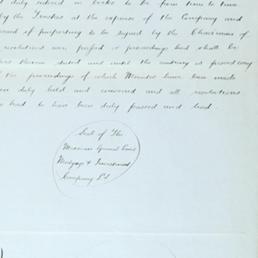 duly entered in books to be from time to time
by the Trustees at the expense of the Company and
and if purporting to be signed by the Chairman of
resolutions were passed or proceedings had shall be
therein stated and until the contrary is proved every
of the proceedings of which Minutes have been made
duly held and convened and all resolutions
had to have been duly passed and had.
Seal of The
General
Mortgage & Investment
Company Ld